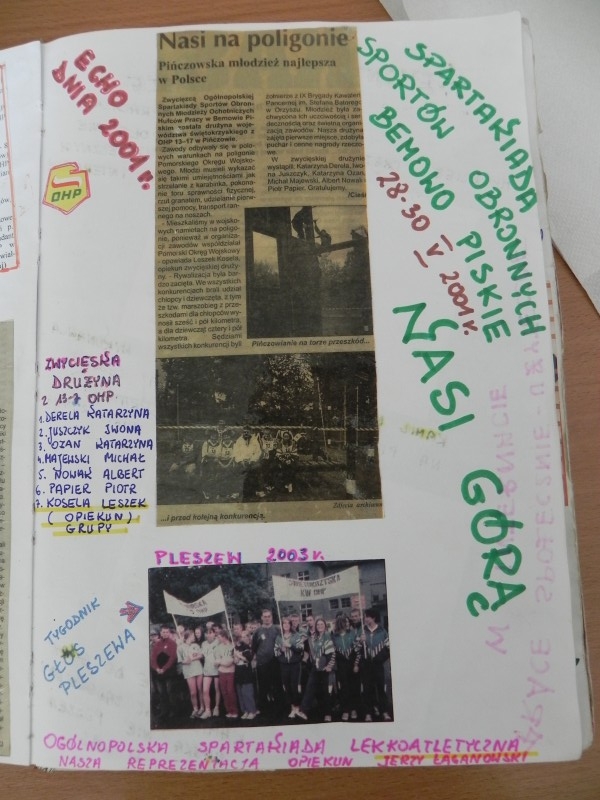 ECHO
DNIA 2001 r.
OHP
Nasi na poligonie
Pińczowska młodzież najlepsza
w Polsce
Zwycięzcą Ogólnopolskiej
Spartakiady Sportów Obron-
nych Młodzieży Ochotniczych
Hufców Pracy w Bemowie Pi-
skim została drużyna woje-
wództwa świętokrzyskiego z
OHP 13-17 w Pińczowie.
Zawody odbywały się w polo-
wych warunkach na poligonie
Pomorskiego Okręgu Wojsko-
wego. Młodzi musieli wykazać
się takimi umiejętnościami, jak
strzelanie z karabinka, pokona-
nie toru sprawności fizycznej,
rzut granatem, udzielanie pierw-
szej pomocy, transport ran-
nego na noszach.
- Mieszkaliśmy w wojsko-
wych namiotach na poligo-
nie, ponieważ w organizacji
zawodów współdziałał
Pomorski Okręg Wojskowy
- opowiada Leszek Kosela,
opiekun zwycięskiej druży-
ny. - Rywalizacja była bar-
dzo zacięta. We wszystkich
konkurencjach brali udział
chłopcy i dziewczęta, z tym
że tzw. marszobieg z prze-
szkodami dla chłopców wy-
nosił sześć i pół kilometra,
a dla dziewcząt cztery i pół
kilometra. Sędziami
wszystkich konkurencji byli
żołnierze z IX Brygady Kawalerii
Pancernej im. Stefana Batorego
w Orzyszu. Młodzież była za-
chwycona ich uczciwością i ser-
decznością oraz świetną organi-
zacją zawodów. Nasza drużyna
zajęła pierwsze miejsce, zdobyła
puchar i cenne nagrody rzeczo-
we.
W zwycięskiej drużynie
wystąpili: Katarzyna Derela, Iwo-
na Juszczyk, Katarzyna Ozan,
Michał Majewski, Albert Nowak i
Piotr Papier. Gratulujemy.
Pińczowianie na torze przeszkód...
...i przed kolejną konkurencją.
Zdjęcia archiwum
SPARTAKIADA
SPORTÓW OBRONNYCH
BEMOWO PISKIE
28-30 V 2001 r.
NASI GÓRĄ
ZWYCIĘSKA
DRUŻYNA
Z 13-7 OHP
1. DERELA KATARZYNA
2. JUSZCZYK IWONA
3. OZAN KATARZYNA
4. MAJEWSKI MICHAŁ
5. NOWAK ALBERT
6. PAPIER PIOTR
7. KOSELA LESZEK
(OPIEKUN)
GRUPY
PLESZEW 2003 r.
TYGODNIK
GŁOS
PLESZEWA
OGÓLNOPOLSKA SPARTAKIADA LEKKOATLETYCZNA
NASZA REPREZENTACJA OPIEKUN JERZY ŁAGANOWSKI